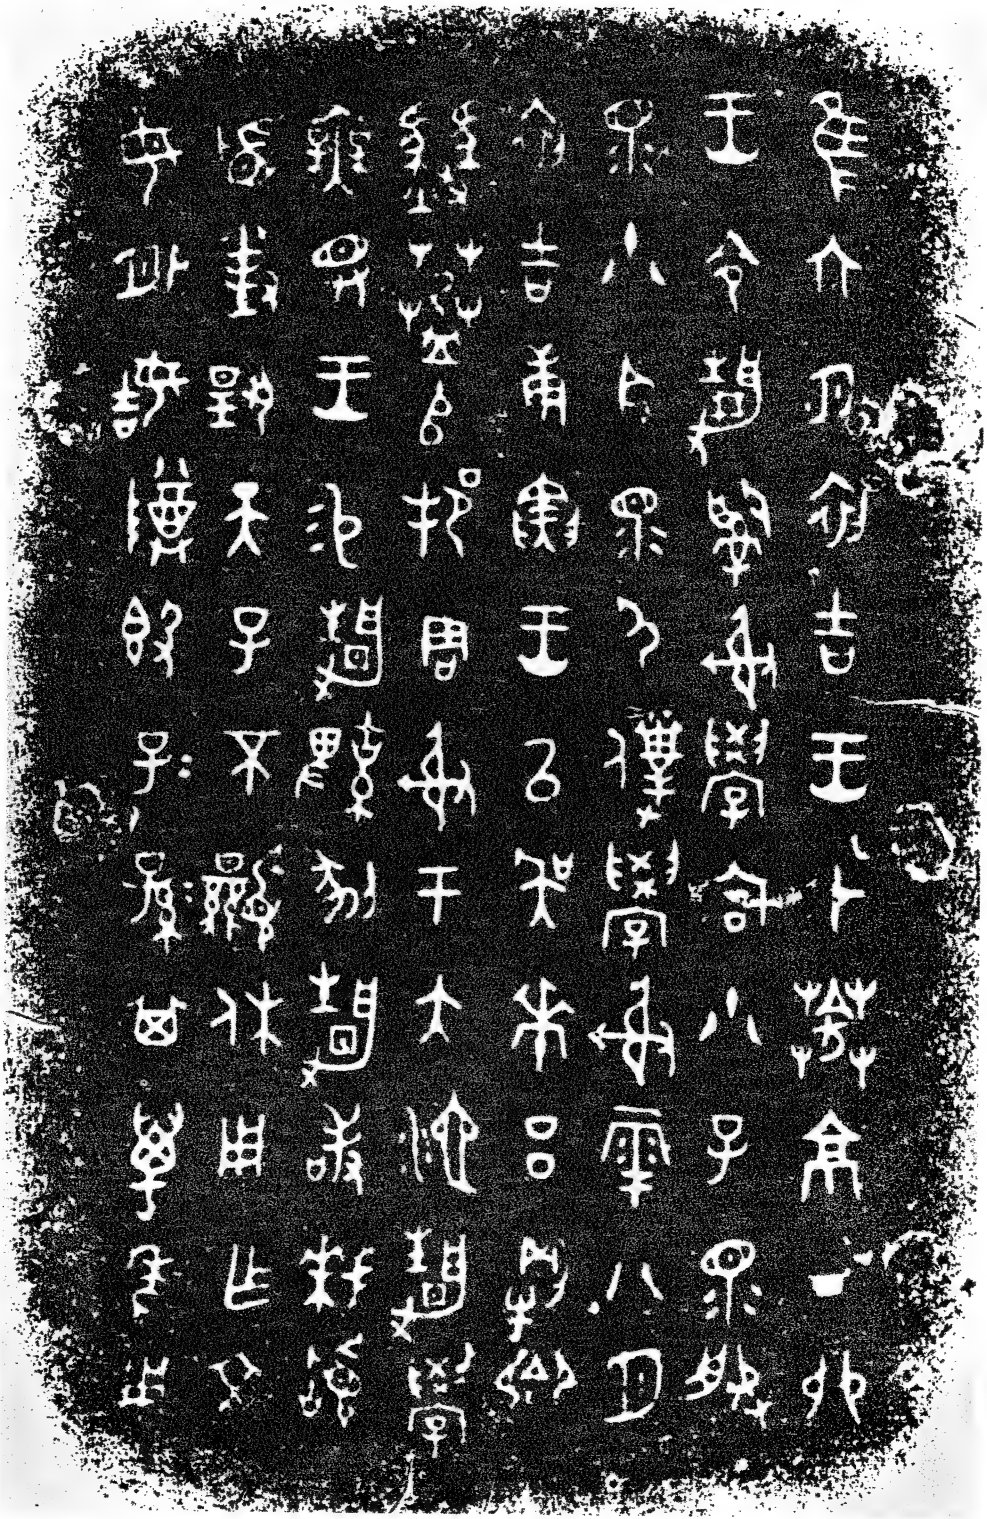 隹六月初吉王才𦮘京丁卯
王令靜𤔲射學宮小子眔服
眔小臣眔尸僕學射雩八月
初吉庚寅王以吳𠦪呂犅卿
𦮘𠂤邦周射于大池靜學
無王易靜鞞剢靜敢拜𩒨
首對揚天子不顯休用乍文
母外姞𣪘子=孫=其萬年用